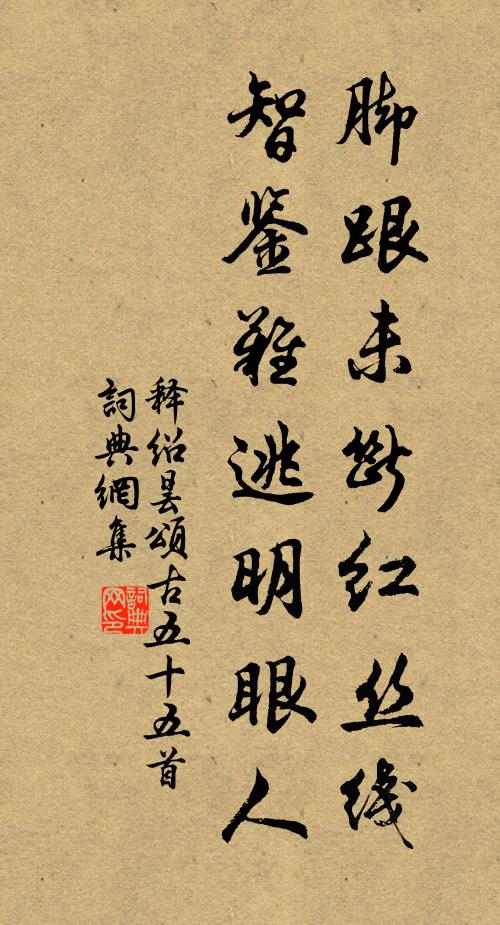 脚跟未断红丝线
智鉴难逃明眼人
释绍昙颂古五十五首
詞典網集
詞典网印